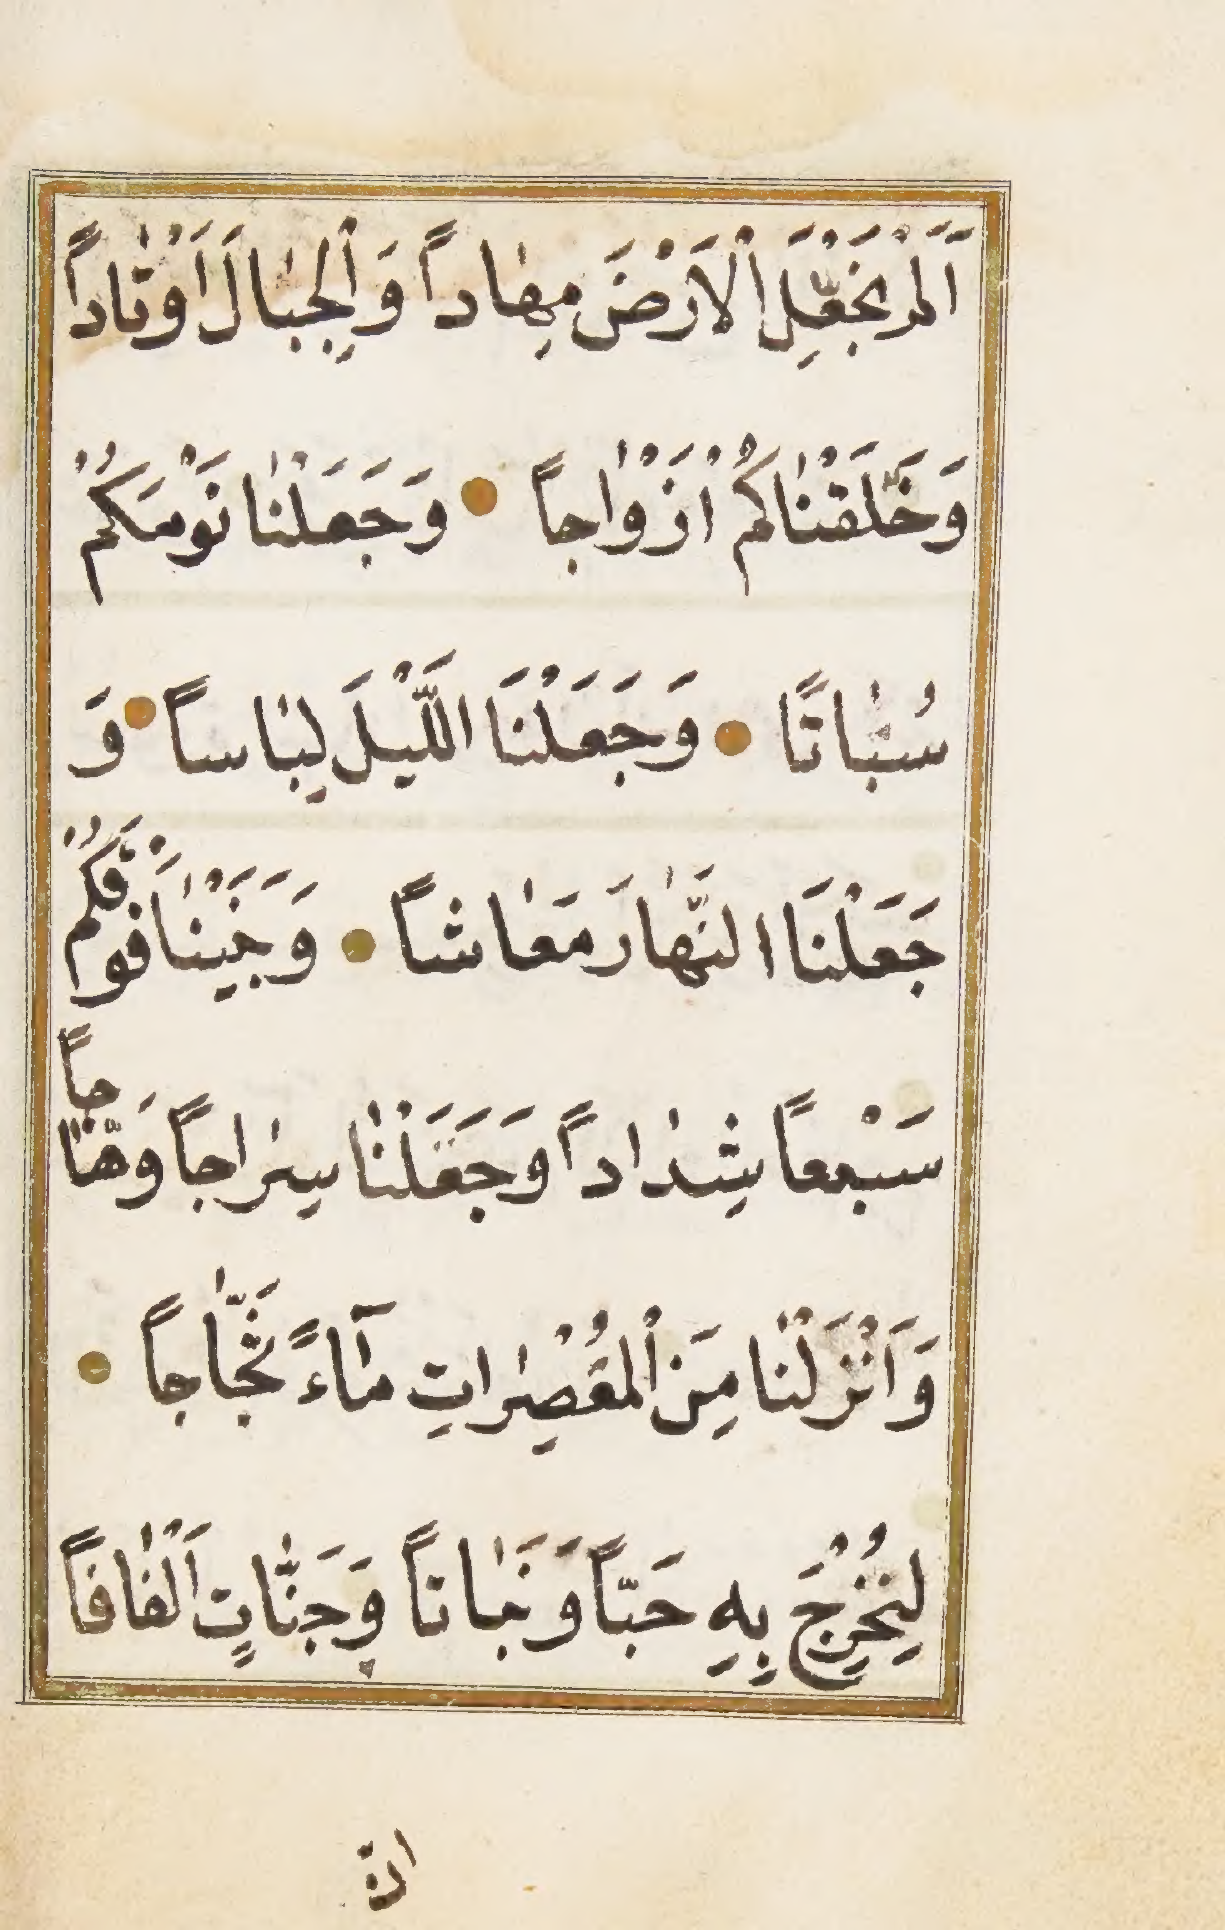 اَلَمْ نَجْعَلِ الْاَرْضَ مِهٰاداً وَالْجِبٰالَ اَوْتٰاداً
وَخَلَقْنٰاكُمْ اَزْوٰاجاً وَجَعَلْنٰا نَوْمَكُمْ
سُبٰاتًا وَجَعَلْنَا اللَّيْلَ لِبٰاساً وَ
جَعَلْنَا النَّهٰارَ مَعٰاشاً وَبَنَيْنٰا فَوْقَكُمْ
سَبْعاً شِدٰاداً وَجَعَلْنٰا سِرٰاجاً وَهّٰاجاً
وَاَنْزَلْنٰا مِنَ الْمُعْصِرٰاتِ مٰٓاءً ثَجّٰاجاً
لِنُخْرِجَ بِهِ حَبّاً وَنَبٰاتاً وَجَنّٰاتٍ اَلْفٰافاً
انّ